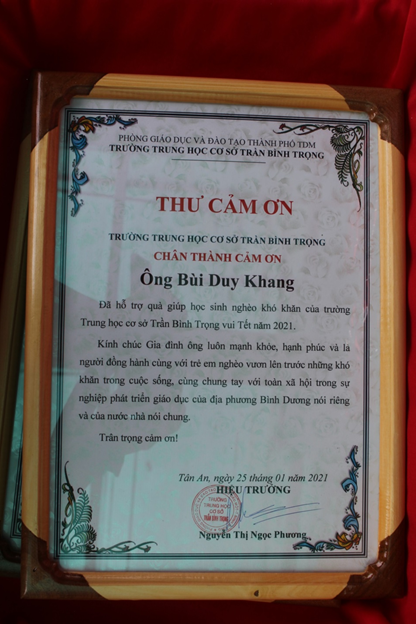 PHÒNG GIÁO DỤC VÀ ĐÀO TẠO THÀNH PHỐ TDM
TRƯỜNG TRUNG HỌC CƠ SỞ TRẦN BÌNH TRỌNG
THƯ CẢM ƠN
TRƯỜNG TRUNG HỌC CƠ SỞ TRẦN BÌNH TRỌNG
CHÂN THÀNH CẢM ƠN
Ông Bùi Duy Khang
Đã hỗ trợ quà giúp học sinh nghèo khó khăn của trường
Trung học cơ sở Trần Bình Trọng vui Tết năm 2021.
Kính chúc Gia đình ông luôn mạnh khỏe, hạnh phúc và là
người đồng hành cùng với trẻ em nghèo vươn lên trước những khó
khăn trong cuộc sống, cùng chung tay với toàn xã hội trong sự
nghiệp phát triển giáo dục của địa phương Bình Dương nói riêng
và của nước nhà nói chung.
Trân trọng cảm ơn!
Tân An, ngày 25 tháng 01 năm 2021
HIỆU TRƯỞNG
TRƯỜNG
TRUNG HỌC
CƠ SỞ
TRẦN BÌNH TRỌNG
Nguyễn Thị Ngọc Phương